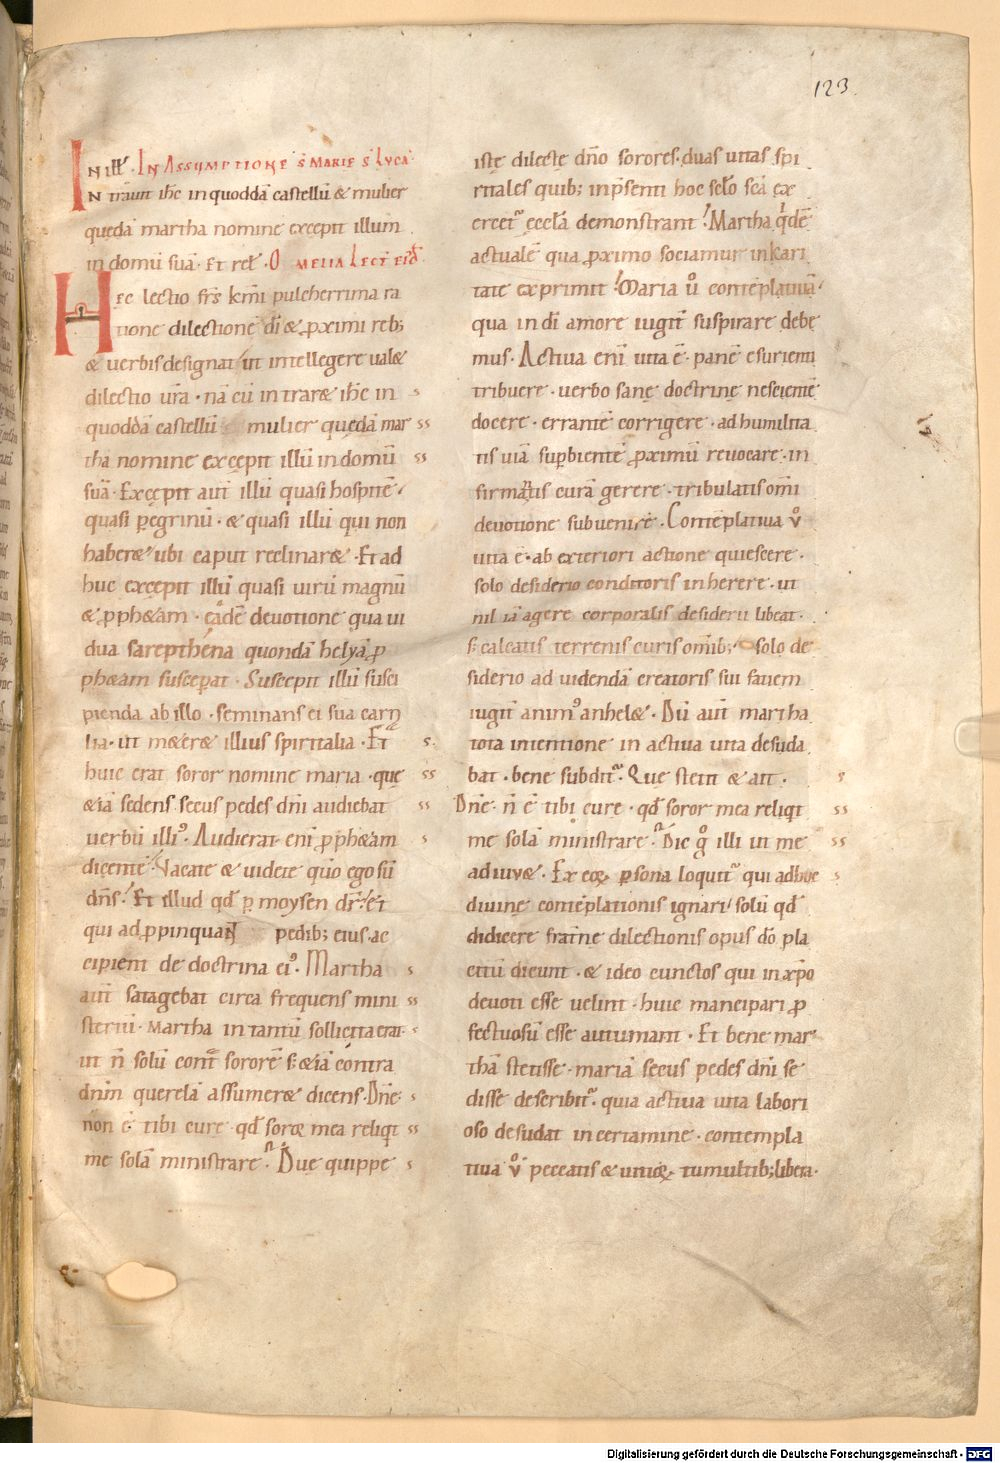 123.
In illo. IN ASSUMPTIONE S MARIE S LUCA
N trauit ihc in quoddā castellū & mulier
quędā martha nomine excepit illum
in domū suā. Et rel. OMELIA LECT EIƋ.
Hęc lectio frs kmi pulcherrima ra
tione dilectionē dī & ꝓximi reb;
& uerbis designat ut intellegere ualeæ
dilectio ur̄a. nā cū intraræ ihc in
quoddā castellū mulier quędā mar
tha nomine excępit illū in domū
suā. Excępit aut̄ illū quasi hospitē.
quasi peregrinū. & quasi illū qui non
haberæ ubi caput reclinaræ. Et ad
huc excępit illū quasi uirū magnū
& ꝓph&am. eadē deuotione qua ui
dua sarepthena quondā helyā ꝓ
ph&am susceperat. Suscepit illū susci
pienda ab illo. seminans ei sua carna
lia. ut m&er& illius spiritalia. Et
huic erat soror nomine maria. quę
&iā sedens secus pedes dn̄i audiebat
uerbū illi᾽. Audierat eni ꝓph&am
dicentē. Vacate & uidete qūo ego sū
dn̄s. Et illud qd̄ p moysen dr̄.
qui adꝓpinquant pedib; eius ac
cipient de doctrina ei᾽. Martha
aut̄ satagebat circa frequens mini
steriū. Martha in tantū sollicita erat.
ut n̄ solū contra sororē s; &iā contra
dn̄m querelā assumer& dicens. Dn̄e.
nōn ē tibi curę. qd̄ soror mea reliqt
me solā ministrare. Duę quippe
istę dilectę dn̄o sorores. duas uitas spi
ritales quib; in p̄senti hoc sclo scā ex
ercet᷑ ęccla demonstrant. Martha qͥdē
actualē qua ꝓximo sociamur in kari
tate exprimit. Maria uͦ contēplatiuā.
qua in dī amore iugit̄ suspirare debę
mus. Actiua eni uita ē. panē esurienti
tribuere. uerbo sanę doctrinę nescientē
docere. errantē corrigere. ad humilita
tis uiā supbientē ꝓximū reuocare. in
firmantis curā gerere. tribulatis omi
deuotione subuenire. Contēplatiua uͦ
uita ē. ab exteriori actione quiescere.
solo desiderio conditoris inherere. ut
nil iā agere corporalis desiderii libeat.
s; calcatis terrenis curis omib; solo de
siderio ad uidendā creatoris sui faciem
iugit̄ anim᾽ anhel&. Dū aut̄ martha
tota intentione in actiua uita desuda
bat. bene subdit᷑. Que stetit & ait.
Dn̄e. n̄ ē tibi curę. qd̄ soror mea reliqt
me solā ministrare. Dic gͦ illi ut me
adiuu&. Ex eoꝝ psona loquit᷑ qui adhuc
diuinę contēplationis ignari solū qd̄
didicere frat̄nę dilectionis opus dō pla
citū dicunt. & ideo cunctos qui in xpo
deuoti esse uelint. huic mancipari ꝓ
fectuosū esse autumant. Et bene mar
thā stetisse. mariā secus pedes dn̄i se
disse describit᷑. quia actiua uita labori
oso desudat in certamine. contempla
tiua uͦ peccatis & uitioꝝ tumultib; libera.
Digitalisierung gefördert durch die Deutsche Forschungsgemeinschaft - DFG